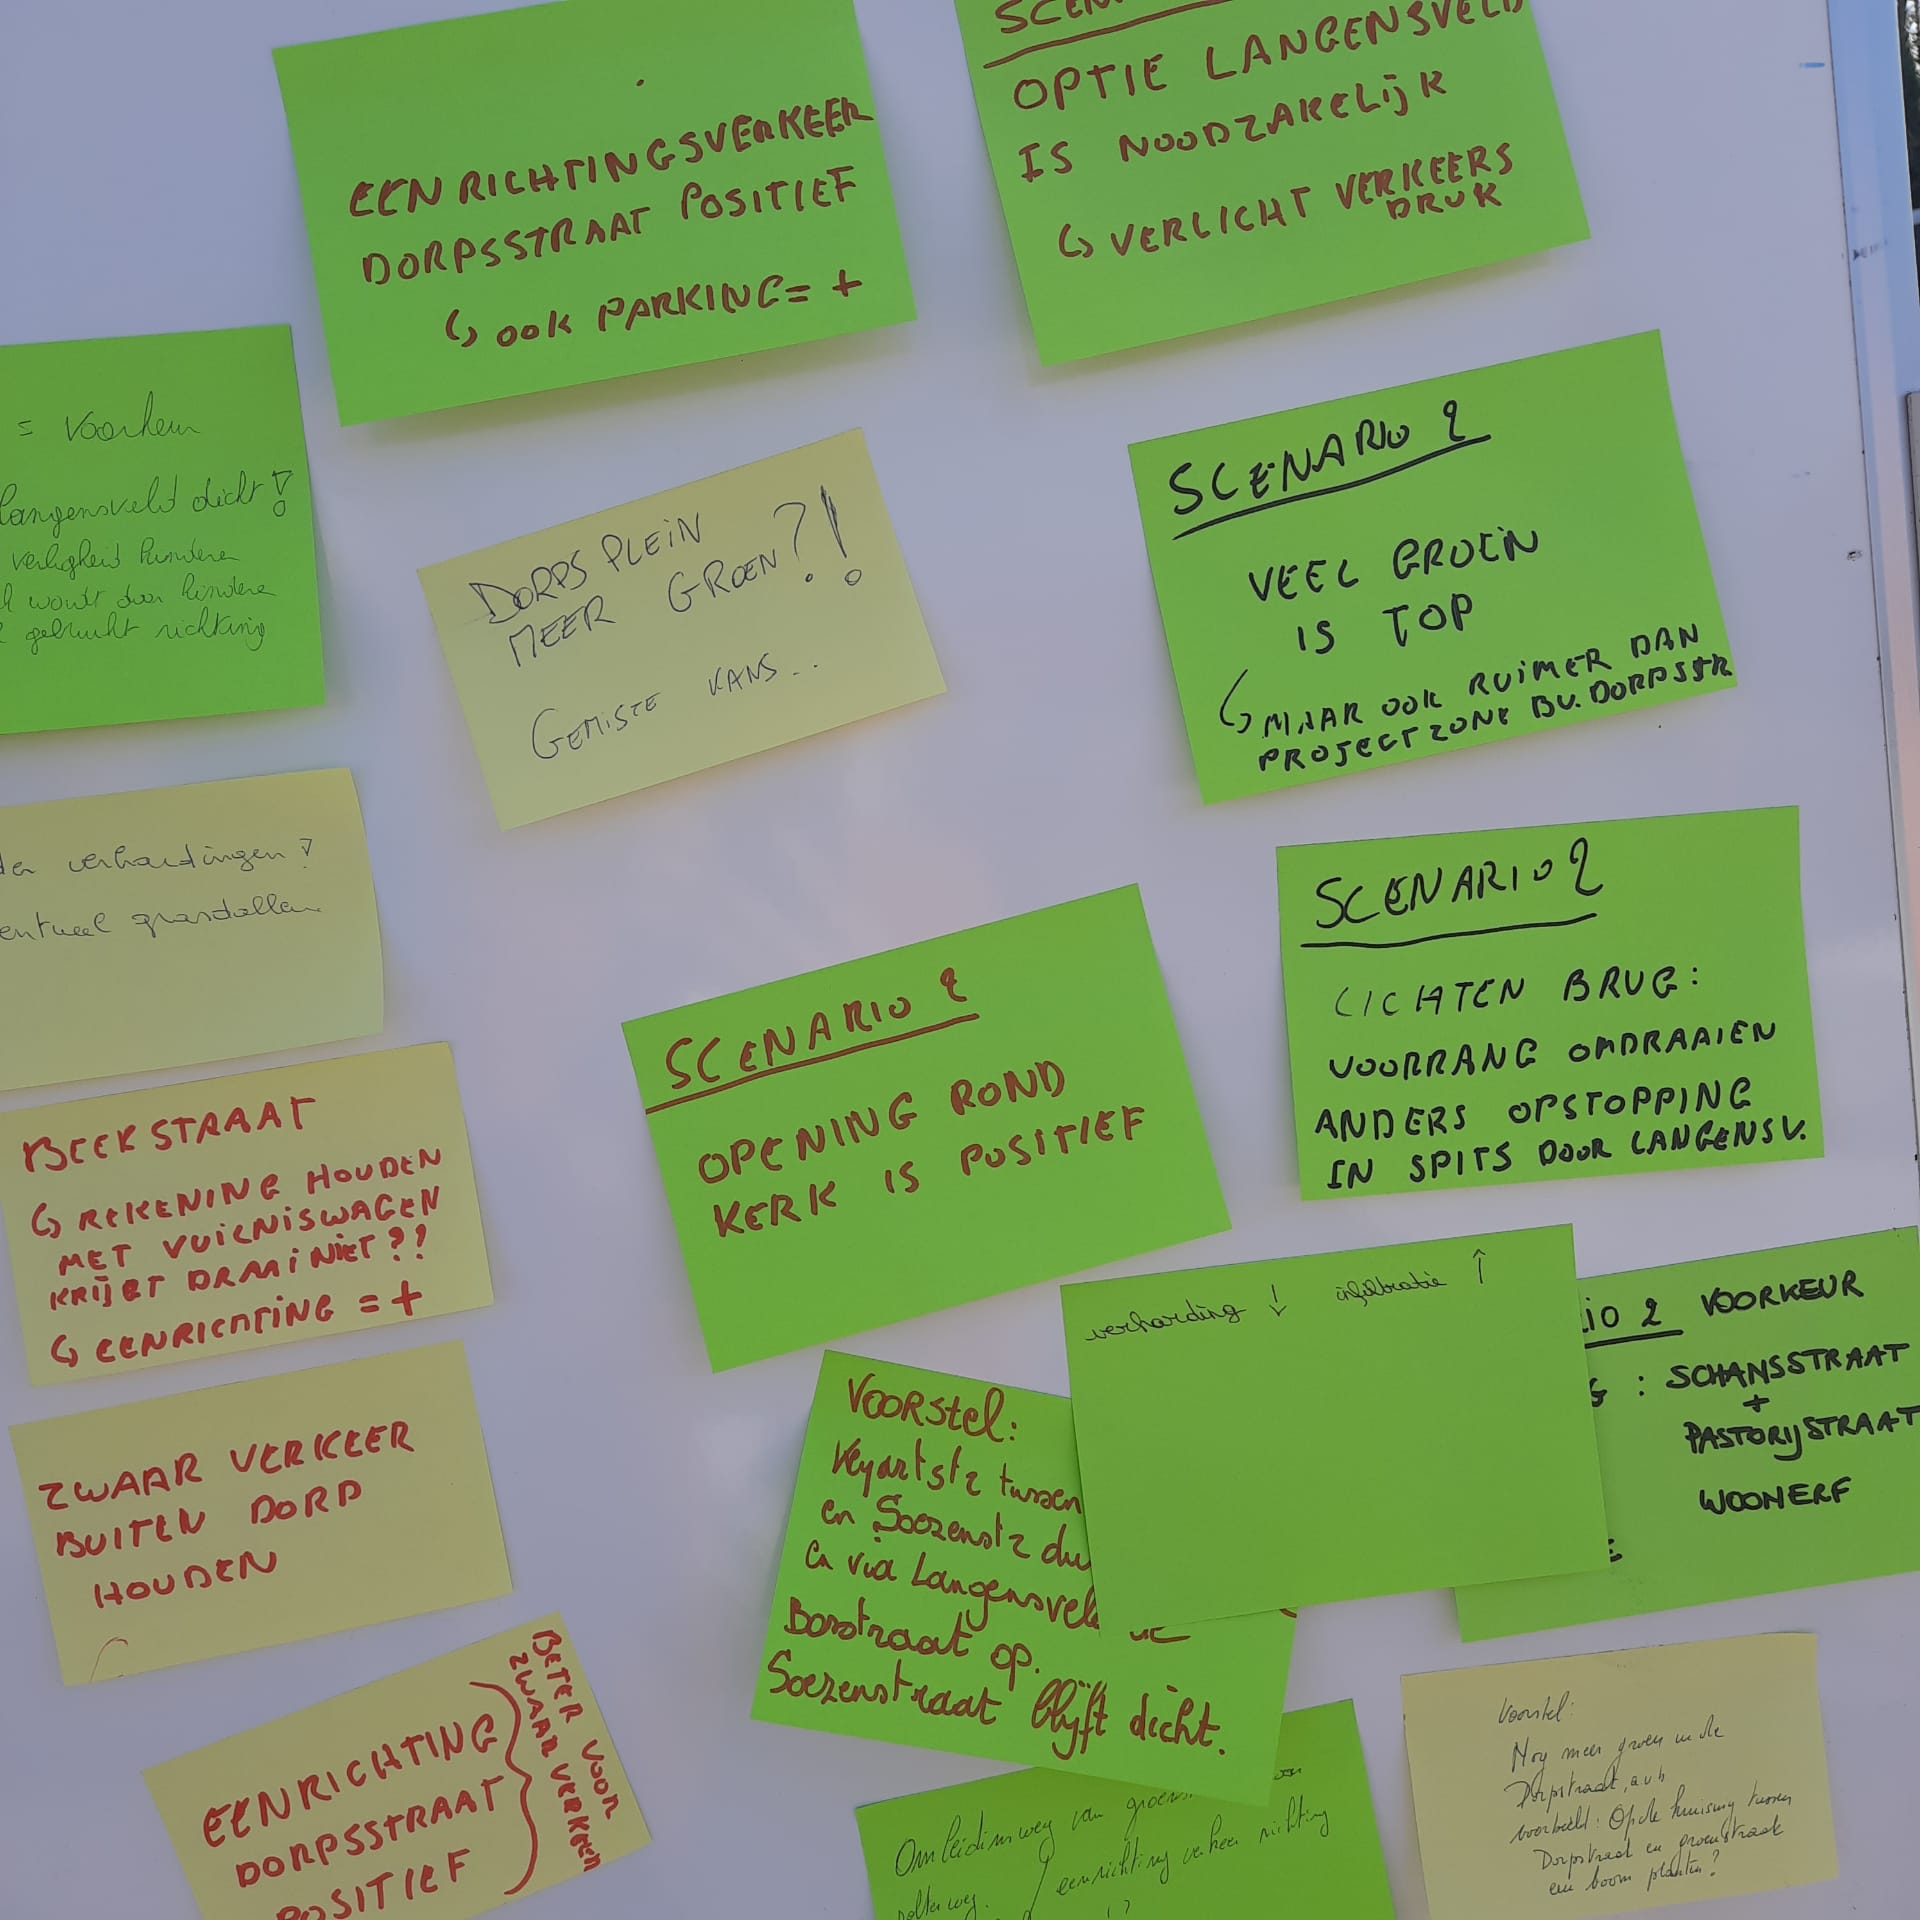 EENRICHTINGSVERKEER
DORPSSTRAAT POSITIEF
↳ OOK PARKING = +
OPTIE LANGENSVELD
IS NOODZAKELIJK
↳ VERLICHT VERKEERS
DRUK
= Voorkeur
Langensveld dicht!
wordt door kindere
gebruikt richting
DORPSPLEIN
MEER GROEN?!
GEMISTE KANS..
SCENARIO 2
VEEL GROEN
IS TOP
↳ MAAR OOK RUIMER DAN
PROJECTZONE BV. DORPSSTR
verhardingen?
grasdallen
SCENARIO 2
OPENING ROND
KERK IS POSITIEF
SCENARIO 2
LICHTEN BRUG:
VOORRANG OMDRAAIEN
ANDERS OPSTOPPING
IN SPITS DOOR LANGENSV.
BEEKSTRAAT
↳ REKENING HOUDEN
MET VUILNISWAGEN
KRIJGT DRAAI NIET??
↳ EENRICHTING = +
verharding ↓ infiltratie ↑
2 VOORKEUR
: SCHANSSTRAAT
+
PASTORIJSTRAAT
WOONERF
ZWAAR VERKEER
BUITEN DORP
HOUDEN
Voorstel:
tussen
en Soezenstr
En via Langensvel
Bosstraat op.
Soezenstraat blijft dicht.
EENRICHTING
DORPSSTRAAT
POSITIEF
BETER VOOR
ZWAAR VERKEER
Omleidinsweg van
eenrichting verkeer richting
Voorstel:
Nog meer groen in de
Dorpstraat, a u b
voorbeeld: Op de kruising tussen
Dorpstraat en groenstraat
een boom planten?